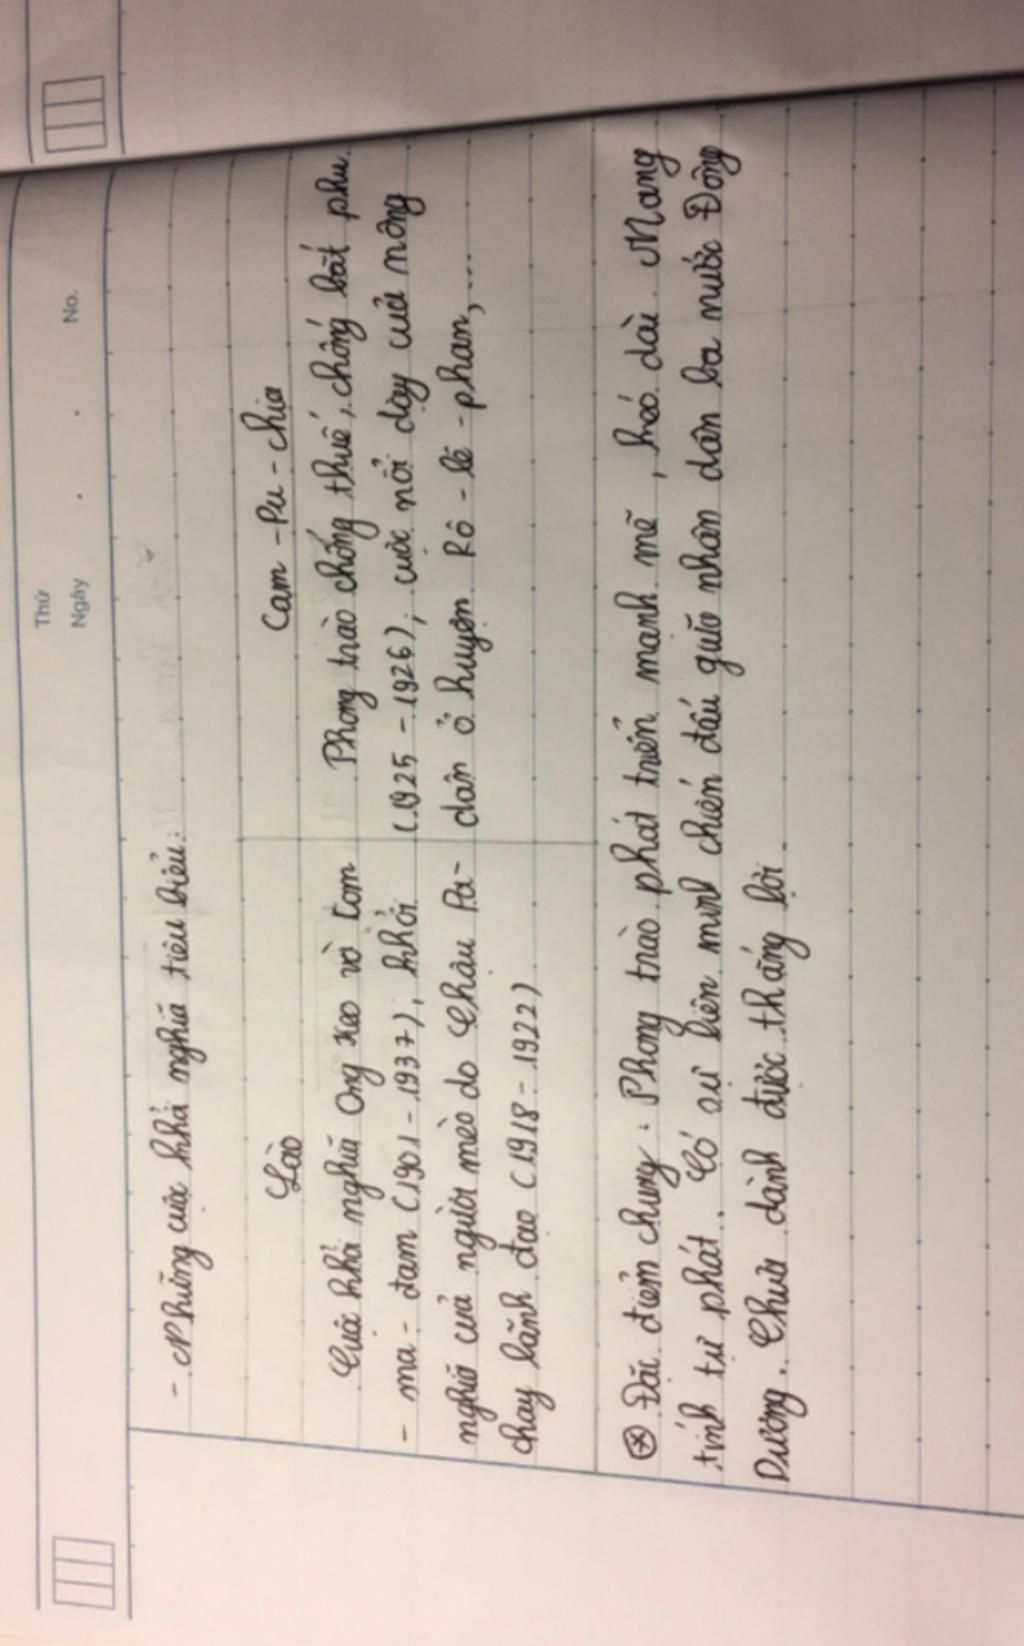 Thứ
Ngày . . No.
- Những cuộc khả nghĩa tiêu biểu:
Lào
Cuộc khả nghĩa Ong Kẹo và Com
- ma - đam (1901 - 1937), khởi
nghĩa của người mèo do Chậu Pa-
chay lãnh đạo (1918 - 1922)
Cam - Pu - chia
Phong trào chống thuế, chống bắt phu
(1925 - 1926), cuộc nổi dậy của nông
dân ở huyện Rô - lê - phan,...
⊛ Đặc điểm chung: Phong trào phát triển mạnh mẽ, kéo dài. Mang
tính tự phát. Có sự liên minh chiến đấu giữa nhân dân ba nước Đông
Dương. Chưa dành được thắng lợi.